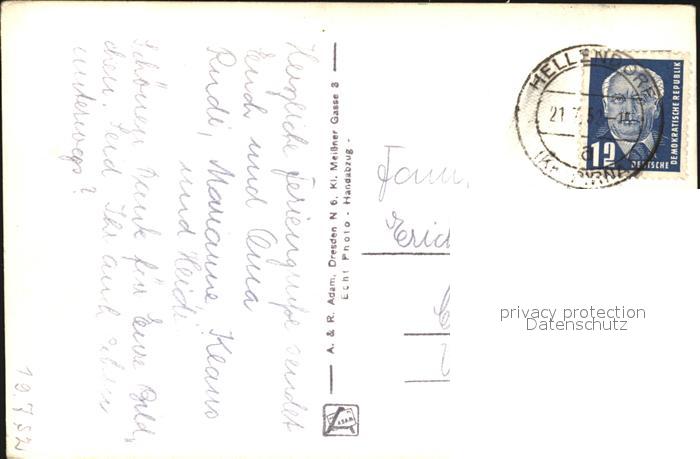 Herzliche Feriengrüße sendet
Euch und Oma
Rudi, Marianne, Klaus
und Heidi
Schönen Dank für Eure Bild,
chen. Seid Ihr auch schon
unterwegs?
19.7.52
A. & R. Adam, Dresden N 6, Kl. Meißner Gasse 3
Echt Photo - Handabzug -
ADAM
HELLENDORF
21.7.52
a
(Kr. PIRNA)
DEUTSCHE DEMOKRATISCHE REPUBLIK
12
Fam.
Erich
privacy protection
Datenschutz